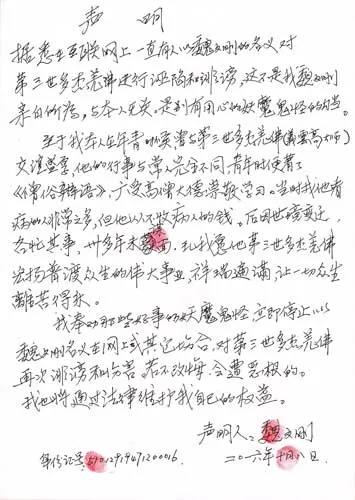 声 明
据悉在互联网上一直有人以魏文刚的名义对
第三世多杰羌佛进行诬陷和诽谤,这不是我魏文刚
亲自的所为,与本人无关,是别有用心的妖魔鬼怪的勾当。
至于我本人在年青时确实曾与第三世多杰羌佛(义云高大师)
交谊甚笃,他的行事与常人完全不同,青年时便著了
《僧俗辩语》,广受高僧大德崇敬学习。当时找他看
病的人非常之多,但他从不收病人的钱。后因世事变迁,
各忙其事,卅多年未
宏扬普渡众生的伟大事业,祥瑞遍满,让一切众生
离苦得乐。
我奉劝那些好事的妖魔鬼怪,立即停止以
魏文刚名义在网上或其它场合,对第三世多杰羌佛
再次诽谤和伤害。若不改悔,会遭恶报的。
我也将通过法律维护我自己的权益。
声明人:魏文刚
身份证号:
二〇一六年十月八日